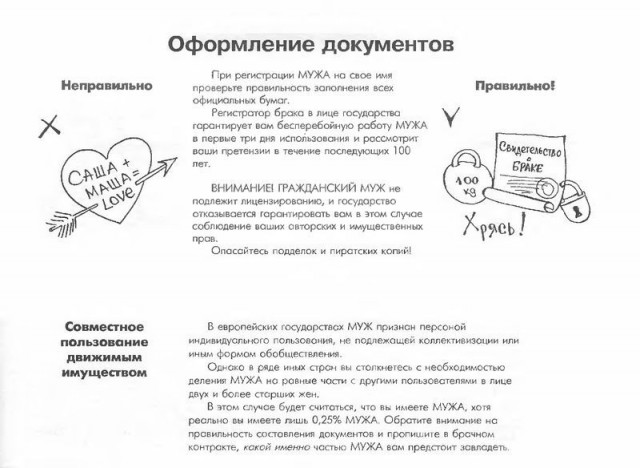 Оформление документов
Неправильно
При регистрации МУЖА на свое имя
проверьте правильность заполнения всех
официальных бумаг.
Регистратор брака в лице государства
гарантирует вам бесперебойную работу МУЖА
в первые три дня использования и рассмотрит
ваши претензии в течение последующих 100
лет.
ВНИМАНИЕ! ГРАЖДАНСКИЙ МУЖ не
подлежит лицензированию, и государство
отказывается гарантировать вам в этом случае
соблюдение ваших авторских и имущественных
прав.
Опасайтесь подделок и пиратских копий!
Правильно!
САША +
МАША =
LOVE
Свидетельство
о
БРАКЕ
100
кг
Хрясь!
Совместное
пользование
движимым
имуществом
В европейских государствах МУЖ признан персоной
индивидуального пользования, не подлежащей коллективизации или
иным формам обобществления.
Однако в ряде иных стран вы столкнетесь с необходимостью
деления МУЖА на равные части с другими пользователями в лице
двух и более старших жен.
В этом случае будет считаться, что вы имеете МУЖА, хотя
реально вы имеете лишь 0,25% МУЖА. Обратите внимание на
правильность составления документов и пропишите в брачном
контракте, какой именно частью МУЖА вам предстоит завладеть.